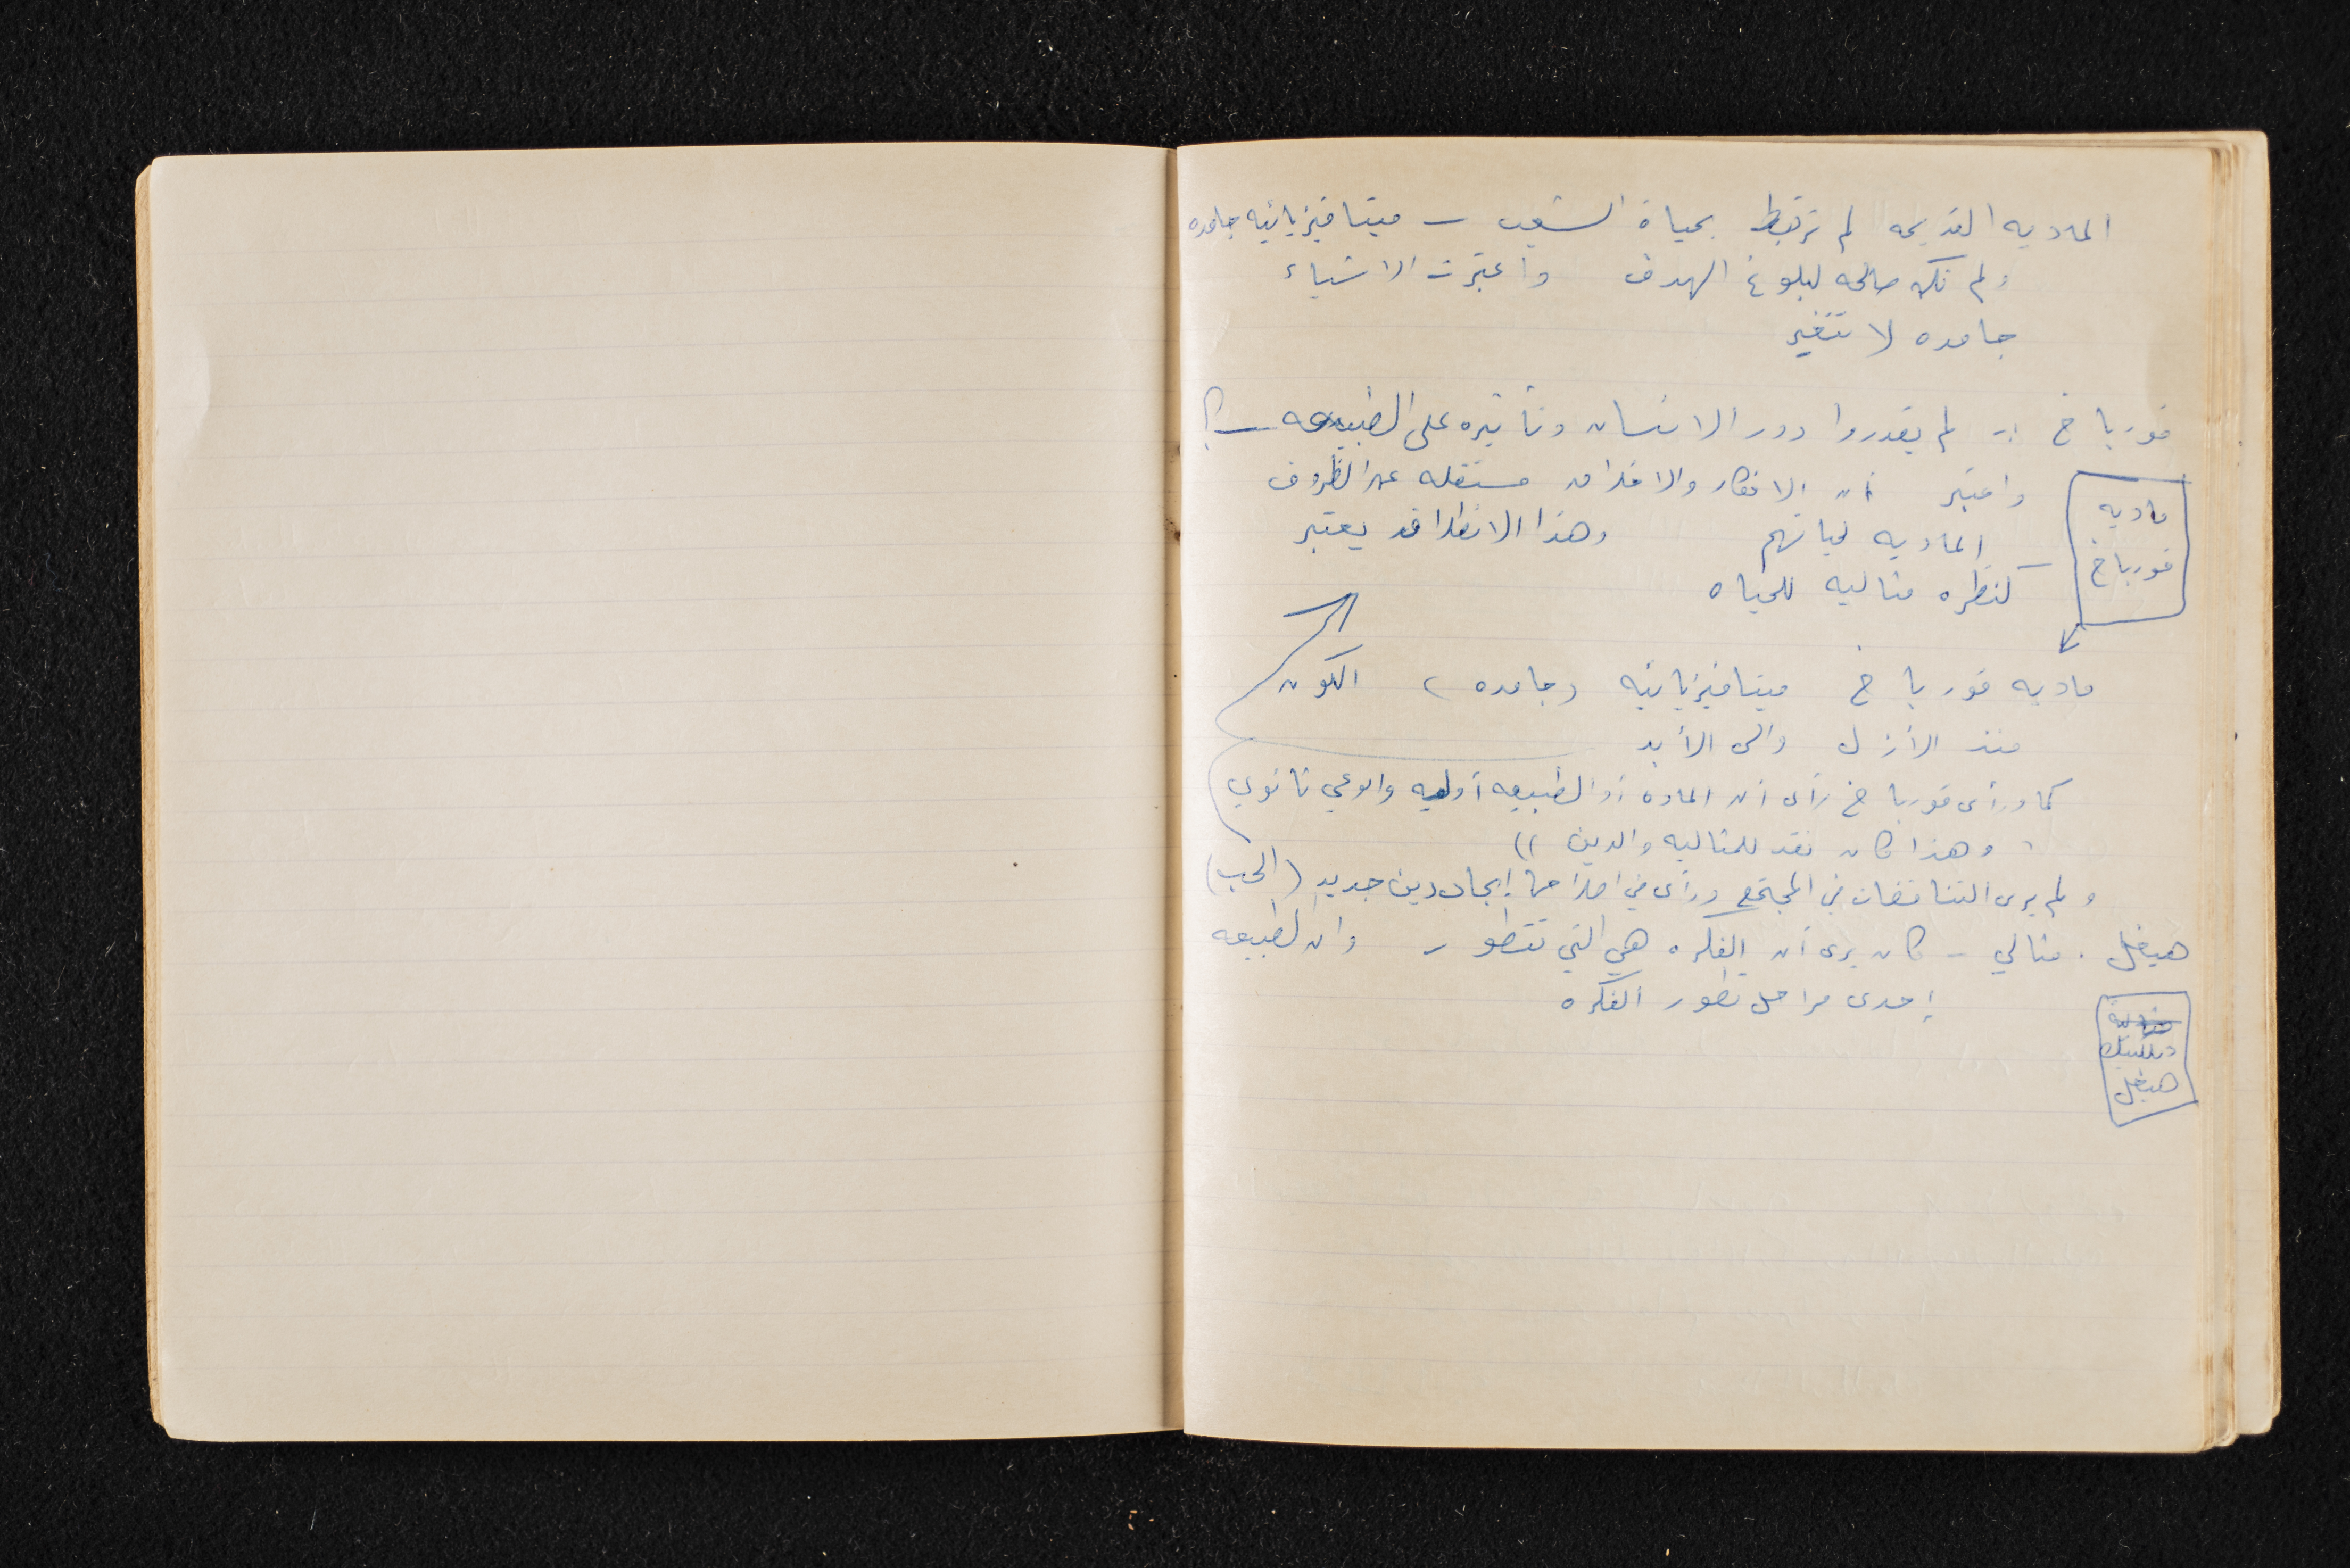 الماديه القديمه لم ترتبط بحياة الشعب - ميتافيزيائيه جامده
ولم تكن صالحه لبلوغ الهدف واعتبرت الاشياء
جامده لا تتغير
فورباخ :- لم يقدروا دور الانسان وتأثيره على الطبيعه - ؟!
واعتبر أن الافكار والاخلاق مستقله عن الظروف
الماديه لحياتهم وهذا الانطلاق قد يعتبر
كنظره مثاليه للحياه
ماديه
فورباخ
ماديه فورباخ ميتافيزيائيه وجامده ، الكون
منذ الأزل والى الأبد
كما ورأى فورباخ رأى أن الماده أو الطبيعه أوليه والوعي ثانوي
وهذا كان نقد للمثاليه والدين ))
ولم يرى التناقضات في المجتمع ورأى في إيجاد دين جديد (الحب)
هيغل . مثالي - كان يرى أن الفكره هي التي تتطور وان الطبيعه
إحدى مراحل تطور الفكره
ديالكتيك
هيغل